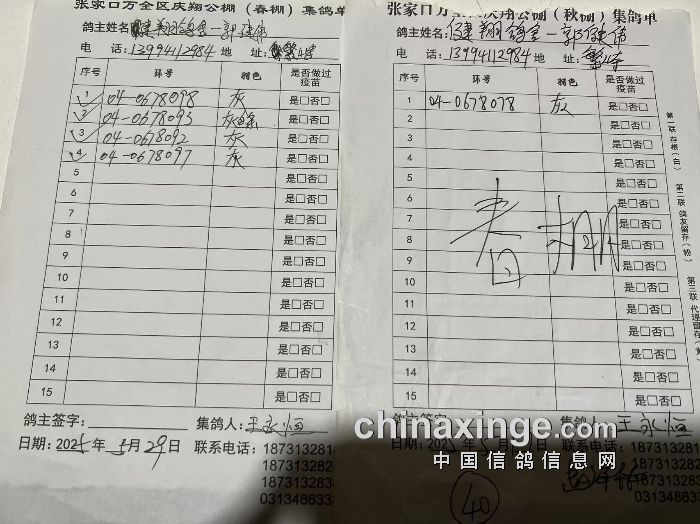 张家口万全区庆翔公棚（春棚）集鸽单
鸽主姓名 健翔鸽舍—郭建伟
电 话：13994112984 地 址：
序号 环号 羽色 是否做过疫苗
1 04-0678098 灰 是□否□
2 04-0678093 是□否□
3 04-0678092 灰 是□否□
4 04-0678097 灰 是□否□
5 是□否□
6 是□否□
7 是□否□
8 是□否□
9 是□否□
10 是□否□
11 是□否□
12 是□否□
13 是□否□
14 是□否□
15 是□否□
鸽主签字： 集鸽人：王永恒
日期：2025年5月29日 联系电话：187313281
187313282
187313283
031348633
张家口万全区庆翔公棚（秋棚）集鸽单
鸽主姓名：健翔鸽舍—郭健伟
电 话：13994112984 地 址：
序号 环号 羽色 是否做过疫苗
1 04-0678078 灰 是□否□
2 是□否□
3 是□否□
4 是□否□
5 是□否□
6 是□否□
7 是□否□
8 是□否□
9 是□否□
10 是□否□
11 是□否□
12 是□否□
13 是□否□
14 是□否□
15 是□否□
春棚
鸽主签字 王永恒
日期：2025年5月 日 联系电话：187313281
187313282
187313283
031348633
40
第一联 存根（白） 第二联 鸽友留存（粉） 第三联 代理留存（黄）
chinaxinge.com
中国信鸽信息网